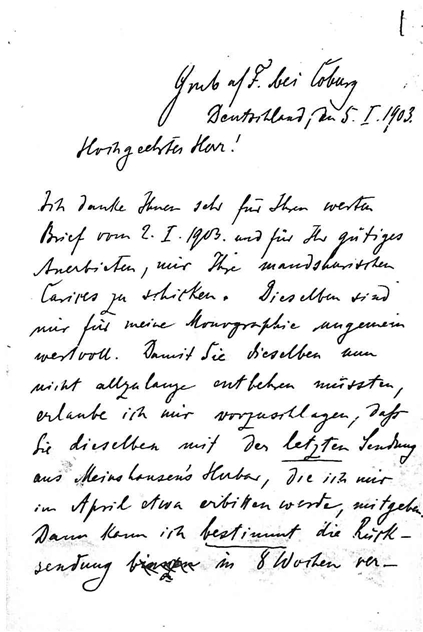 Grub a/F. bei Coburg
Deutschland, den 5. I. 1903.
Hochgeehrter Herr!
Ich danke Ihnen sehr für Ihren werten
Brief vom 2. I. 1903. und für Ihr gütiges
Anerbieten, mir Ihre mandshurischen
Carices zu schicken. Dieselben sind
mir für meine Monographie ungemein
wertvoll. Damit Sie dieselben nun
nicht allzulange entbehren müssten,
erlaube ich mir vorzuschlagen, daß
Sie dieselben mit der letzten Sendung
aus Meinshausen's Herbar, die ich mir
im April etwa erbitten werde, mitgeben.
Dann kann ich bestimmt die Rück-
sendung in 8 Wochen ver-